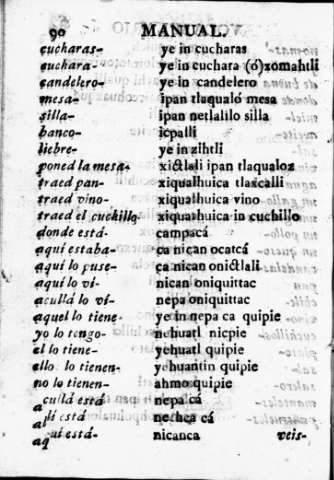 90 MANUAL.
cucharas- ye in cucharas
cuchara- ye in cuchara (ó) xomahtli
candelero- ye in candelero
mesa- ipan tlaqualó mesa
silla- ipan netlalilo silla
banco- icpalli
liebre- ye in zihtli
poned la mesa- xictlali ipan tlaqualoz
traed pan- xiqualhuica tlaxcalli
traed vino- xiqualhuica vino
traed el cuchillo- xiqualhuica in cuchillo
donde está- campacá
aquí estaba- ca nican ocatcá
aquí lo puse- ca nican onictlali
aquí lo ví- nican oniquittac
acullá lo ví- nepa oniquittac
aquel lo tiene- ye in nepa ca quipie
yo lo tengo- nehuatl nicpie
el lo tiene- yehuatl quipie
ellos lo tienen- yehuantin quipie
no lo tienen- ahmo quipie
acullá está- nepa cá
ahí está- cá
aquí está- nicanca veis-